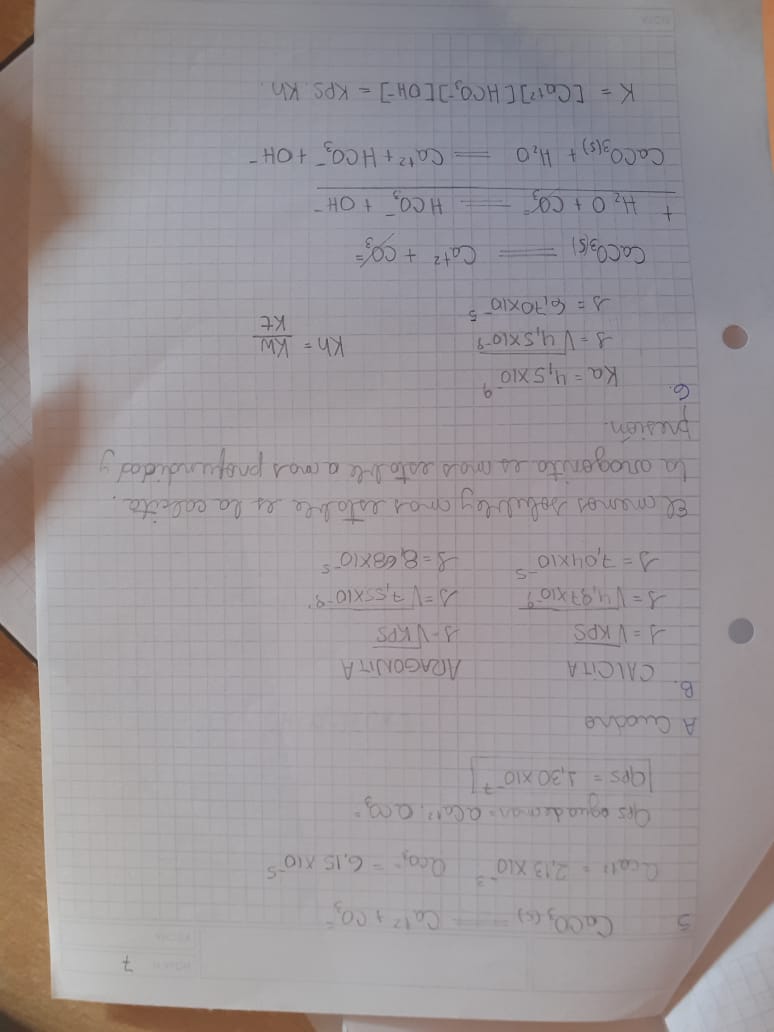 7
5 CaCO₃(s) ⇌ Ca⁺² + CO₃⁼
aCa⁺² = 2,13×10⁻³ aCO₃⁼ = 6,15×10⁻⁵
Qps agua de mar = aCa⁺². aCO₃⁼
Qps = 1,30×10⁻⁷
A Cuadro
B.
CALCITA ARAGONITA
s = √KPS s = √KPS
s = √4,97×10⁻⁹ s = √7,55×10⁻⁹
s = 7,04×10⁻⁵ s = 8,68×10⁻⁵
El menos soluble y mas estable es la calcita.
La aragonita es mas estable a mas profundidad y
presión.
C.
Ka = 4,5×10⁻⁹
s = √4,5×10⁻⁹ Kh = Kw
s = 6,70×10⁻⁵ Kt
CaCO₃(s) ⇌ Ca⁺² + CO₃⁼
+ H₂O + CO₃⁼ ⇌ HCO₃⁻ + OH⁻
CaCO₃(s) + H₂O ⇌ Ca⁺² + HCO₃⁻ + OH⁻
K = [Ca⁺²][HCO₃⁻][OH⁻] = KPS. Kh.